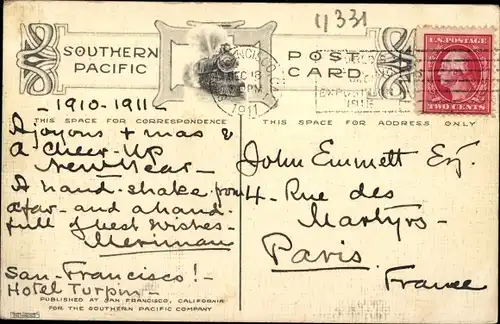 11331
SOUTHERN PACIFIC
POST CARD
FRANCISCO, CA
DEC 18
PM
1911
1915
U.S. POSTAGE
TWO CENTS
THIS SPACE FOR CORRESPONDENCE
THIS SPACE FOR ADDRESS ONLY
-1910-1911-
A joyous Xmas &
a Cheer-Up
New Year-
A hand-shake from
afar- and a hand-
full of best wishes-
Merriman
San-Francisco!-
Hotel Turpin-
John Emmett Esq.
4- Rue des
Martyrs-
Paris
France
PUBLISHED AT SAN FRANCISCO, CALIFORNIA
FOR THE SOUTHERN PACIFIC COMPANY